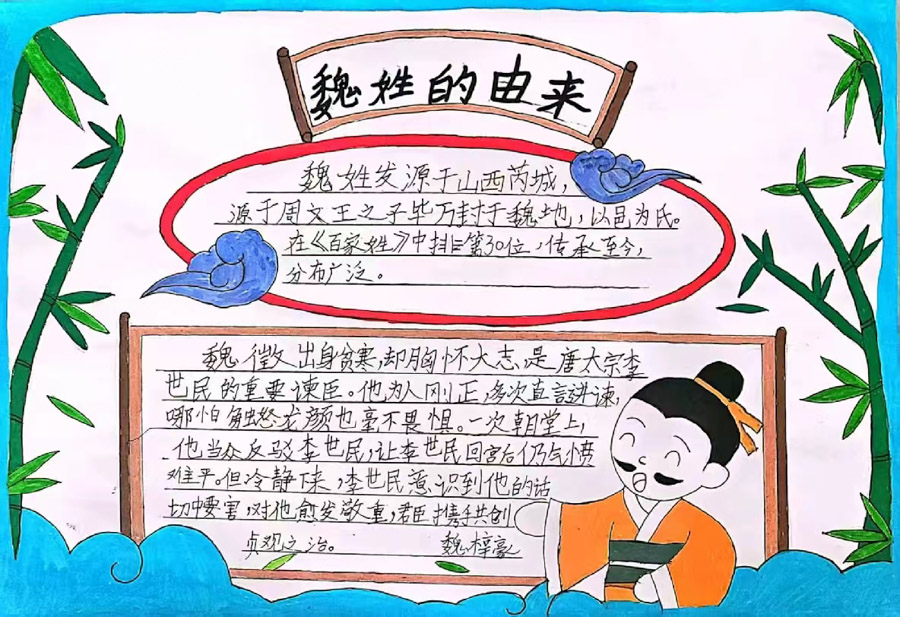 魏姓的由来
魏姓发源于山西芮城，
源于周文王之子毕万封于魏地，以邑为氏。
在《百家姓》中排名第30位，传承至今，
分布广泛。
魏徵出身贫寒，却胸怀大志，是唐太宗李
世民的重要谏臣。他为人刚正，多次直言进谏，
哪怕触怒龙颜也毫不畏惧。一次朝堂上，
他当众反驳李世民，让李世民回宫后仍气愤
难平。但冷静下来，李世民意识到他的话
切中要害，对他愈发敬重，君臣携手共创
贞观之治。
魏梓豪